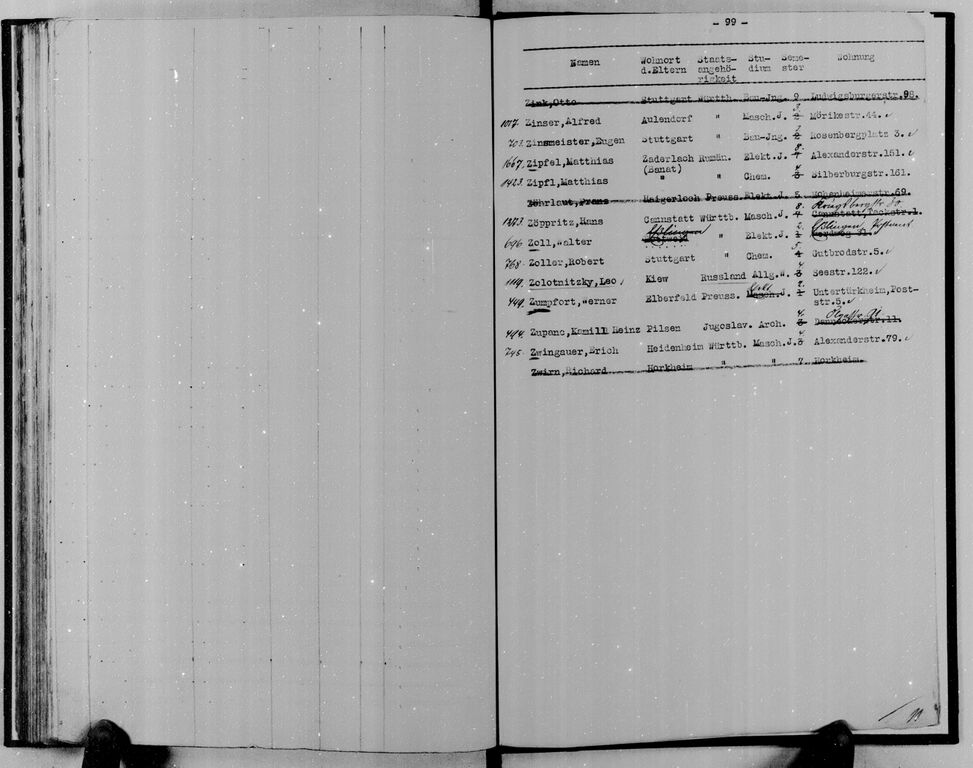 - 99 -
Namen Wohnort d.Eltern Staats-angehö-rigkeit Stu-dium Seme-ster Wohnung
Zink,Otto Stuttgart Württb. Bau-Jng. 9 Ludwigsburgerstr.98.
1017. Zinser,Alfred Aulendorf " Masch.J. Mörikestr.44.
703. Zinsmeister,Eugen Stuttgart " Bau-Jng. Rosenbergplatz 3.
1667. Zipfel,Matthias Zaderlach Rumän. Elekt.J. 8. Alexanderstr.151.
(Banat)
1423. Zipfl,Matthias " " Chem. 4 3 Silberburgstr.161.
Zöhrlaut,Franz Haigerloch Preuss. Elekt.J. 5 Hohenheimerstr.69.
8.
1273. Zöppritz,Hans Cannstatt Württb. Masch.J. 4 Cannstatt,
2. Esslingen,
696 Zoll,Walter Esslingen " Elekt.J. 1
5.
768. Zoller,Robert Stuttgart " Chem. 4 Gutbrodstr.5.
4.
1119. Zolotnitzky,Leo Kiew Russland Allg.W. 3 Seestr.122.
2.
449. Zumpfort,Werner Elberfeld Preuss. Masch.J. 1 Untertürkheim,Post-
str.5.
4. Olgastr.
494. Zupanc,Kamill Heinz Pilsen Jugoslav. Arch. 3
4
745. Zwingauer,Erich Heidenheim Württb. Masch.J. 3 Alexanderstr.79.
Zwirn,Richard Horkheim " " 7 Horkheim.
99